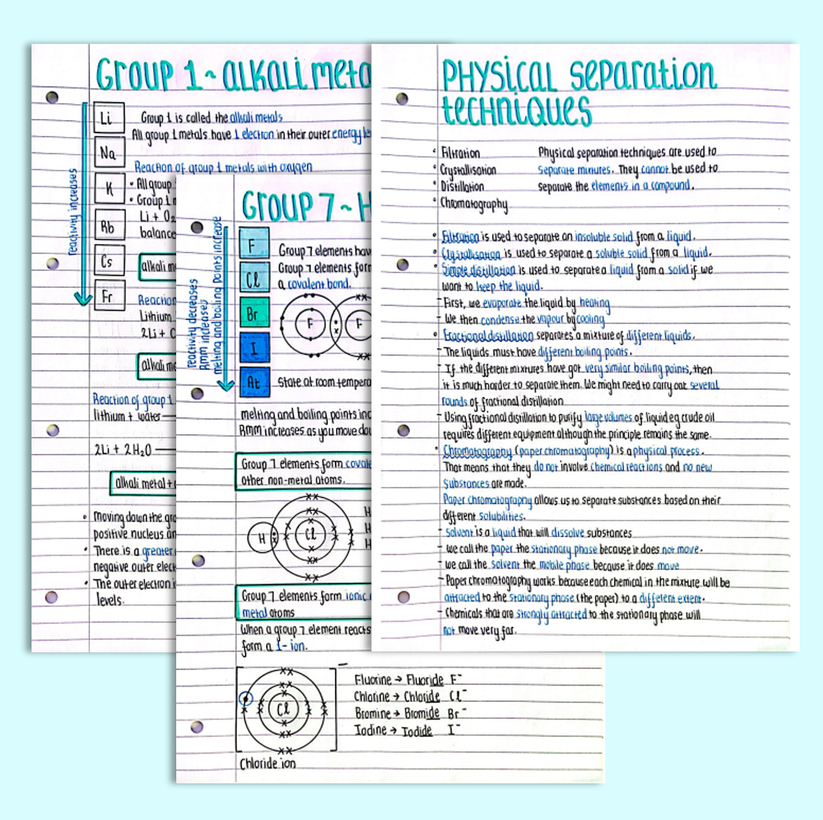 Group 1~alkali meta
Li
Na
K
Rb
Cs
Fr
reactivity increases
Group 1 is called the alkali metals
All group 1 metals have 1 electron in their outer energy le
Reaction of group 1 metals with oxygen
• All group
• Group 1
Li + O2
balance
alkali m
Reaction
Lithium
2Li + C
alkali me
Reaction of group 1
lithium + water
2Li + 2H2O
alkali metal +
• Moving down the gro
positive nucleus an
• There is a greater
negative outer elect
• The outer electron i
levels.
Group 7~H
F
Cl
Br
I
At
reactivity decreases
RMM increases
melting and boiling points increase
Group 7 elements hav
Group 7 elements form
a covalent bond.
F
F
State at room tempera
melting and boiling points inc
RMM increases as you move dow
Group 7 elements form covale
other non-metal atoms.
H
Cl
H
H
H
Group 7 elements form ionic
metal atoms
When a group 7 element reacts
form a 1- ion.
Cl
−
Chloride ion
Fluorine → Fluoride F⁻
Chlorine → Chloride Cl⁻
Bromine → Bromide Br⁻
Iodine → Iodide I⁻
Physical separation
techniques
• Filtration
• Crystallisation
• Distillation
• Chromatography
Physical separation techniques are used to
separate mixtures. They cannot be used to
separate the elements in a compound.
• Filtration is used to separate an insoluble solid from a liquid.
• Crystallisation is used to separate a soluble solid from a liquid.
• Simple distillation is used to separate a liquid from a solid if we
want to keep the liquid.
- First, we evaporate the liquid by heating
- We then condense the vapour by cooling
• Fractional distillation separates a mixture of different liquids.
- The liquids must have different boiling points.
- If the different mixtures have got very similar boiling points, then
it is much harder to separate them. We might need to carry out several
rounds of fractional distillation
- Using fractional distillation to purify large volumes of liquid eg crude oil
requires different equipment although the principle remains the same.
• Chromatography (paper chromatography) is a physical process.
That means that they do not involve chemical reactions and no new
substances are made.
Paper chromatography allows us to separate substances based on their
different solubilities.
- solvent is a liquid that will dissolve substances
- we call the paper the stationary phase because it does not move.
- we call the solvent the mobile phase because it does move
- Paper chromatography works because each chemical in the mixture will be
attracted to the stationary phase (the paper) to a different extent.
- Chemicals that are strongly attracted to the stationary phase will
not move very far.